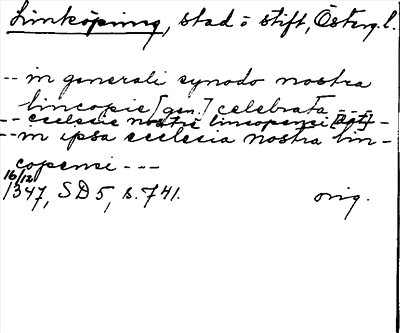 Linköping, stad o stift, Österg. l.
-- in generali synodo nostra
lincopie [gen.] celebrata ---
-- ecclesie nostre lincopensi [dat] --
-- in ipsa ecclesia nostra lin-
copensi ---
16/12
1347, SD 5, s. 741. orig.